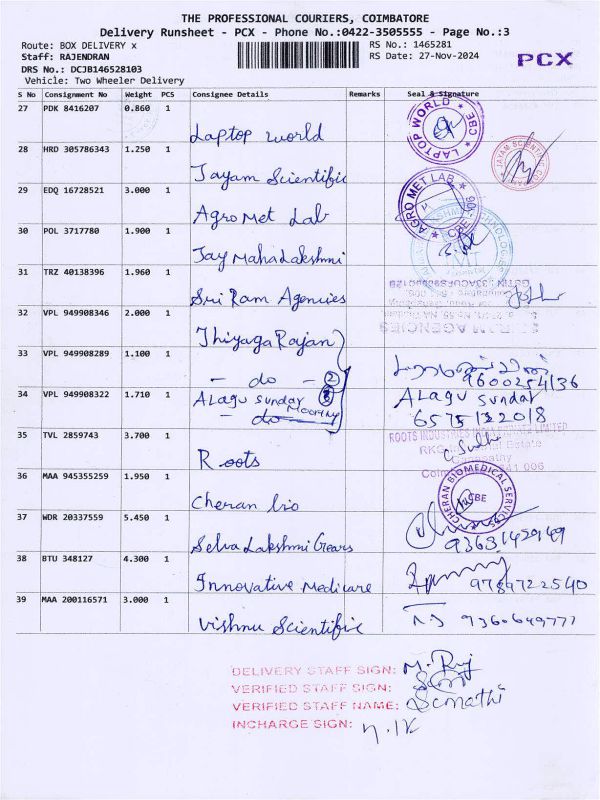 THE PROFESSIONAL COURIERS, COIMBATORE
Delivery Runsheet - PCX - Phone No.:0422-3505555 - Page No.:3
Route: BOX DELIVERY x
RS No.: 1465281
Staff: RAJENDRAN
RS Date: 27-Nov-2024
PCX
DRS No.: DCJB146528103
Vehicle: Two Wheeler Delivery
S No Consignment No Weight PCS Consignee Details Remarks Seal & Signature
27 PDK 8416207 0.860 1
Laptop world
LAPTOP WORLD CBE
28 HRD 305786343 1.250 1
Jayam Scientific
JAYAM SCIENTIFIC
29 EDQ 16728521 3.000 1
Agro Met Lab
AGRO MET LAB
30 POL 3717780 1.900 1
Jay MahaLakshmi
31 TRZ 40138396 1.960 1
Sri Ram Agencies
RAM AGENCIES
32 VPL 949908346 2.000 1
Thiyaga Rajan
33 VPL 949908289 1.100 1
- do - 2
9600254136
34 VPL 949908322 1.710 1
ALAGU sunday
Moorthy
- do
ALAGU sundar
6575122018
35 TVL 2859743 3.700 1
Roots
ROOTS INDUSTRIES INDIA PRIVATE LIMITED
Estate
641 006
36 MAA 945355259 1.950 1
Cheran bio
CHERAN BIOMEDICAL SERVICES
CBE
37 WDR 20337559 5.450 1
Selva Lakshmi Gears
9363142949
38 BTU 348127 4.300 1
Innovative Medicare
9789722540
39 MAA 200116571 3.000 1
Vishnu Scientific
9360649777
DELIVERY STAFF SIGN: M. Raj
VERIFIED STAFF SIGN:
VERIFIED STAFF NAME: Sumathi
INCHARGE SIGN: